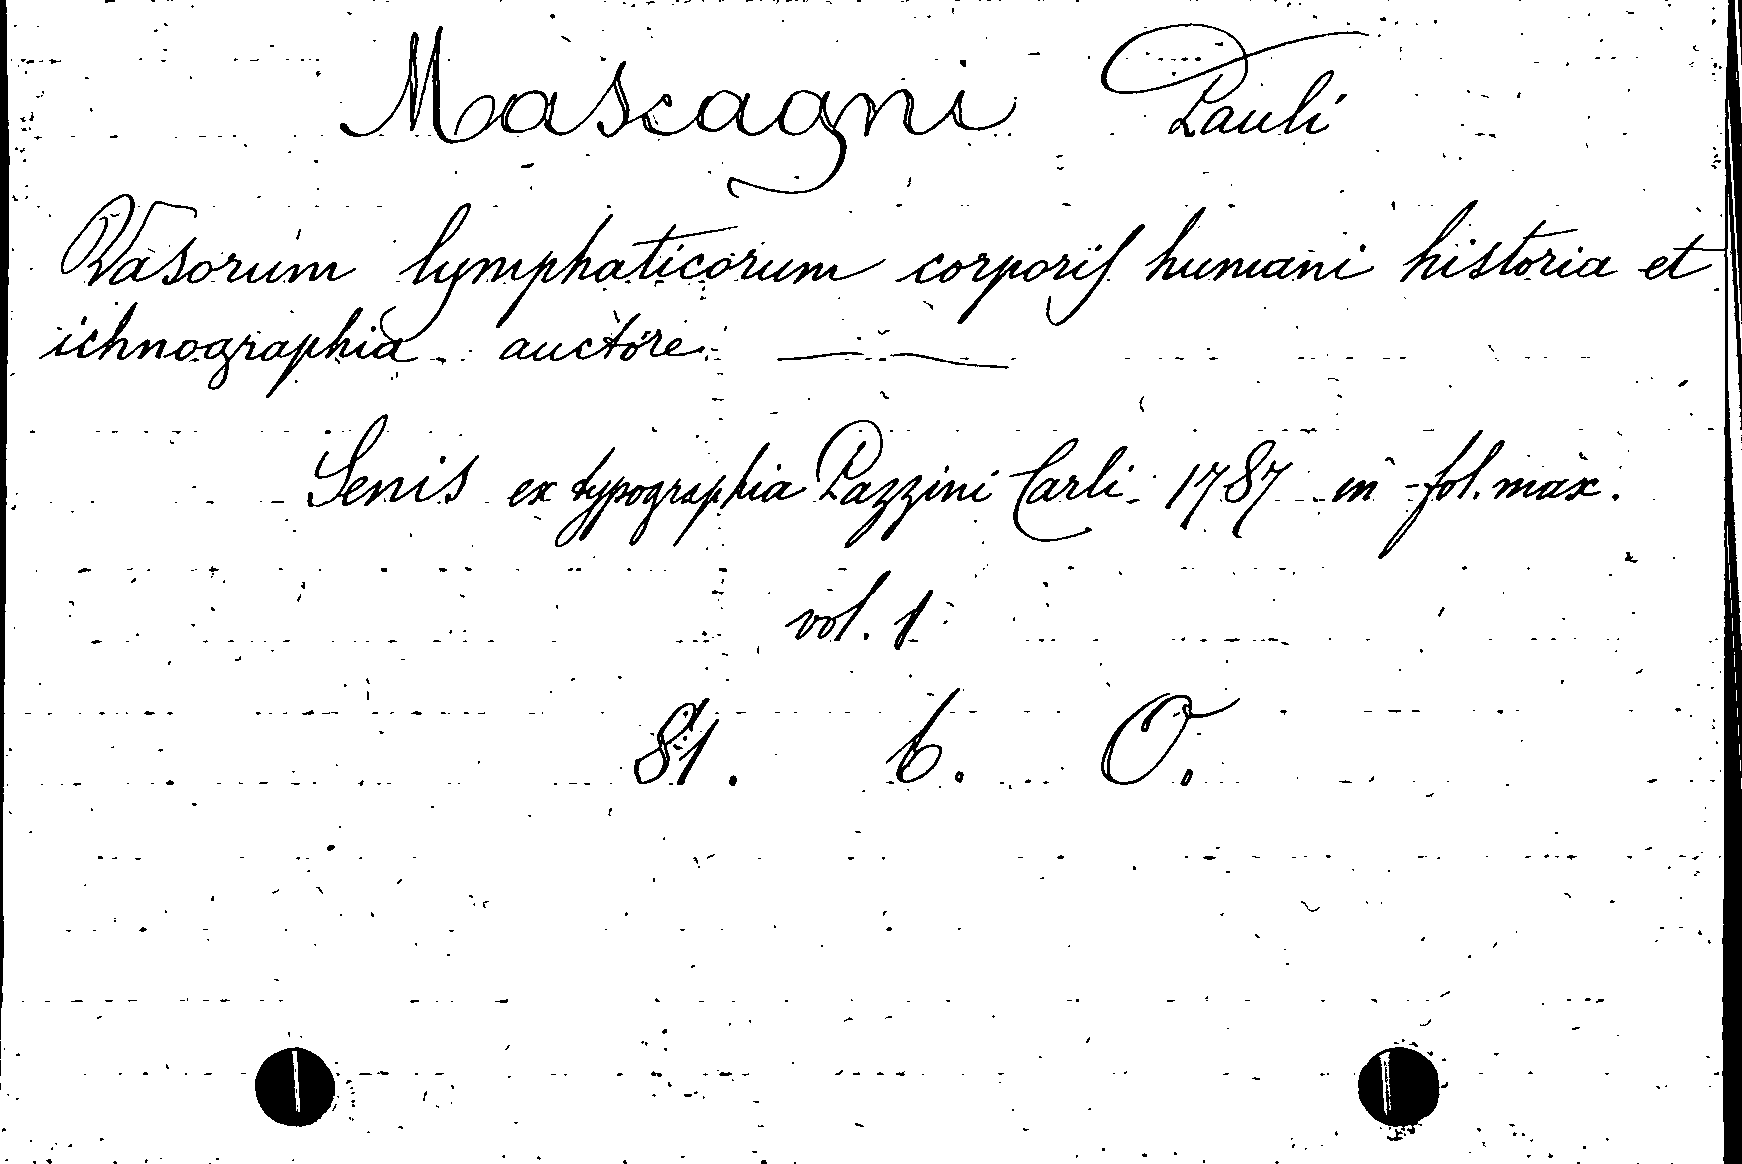 Mascagni Pauli
Vasorum lymphaticorum corporis humani historia et
ichnographia auctore —
Senis ex typographia Pazzini Carli 1787 in fol. max.
vol. 1
81. 6. O.